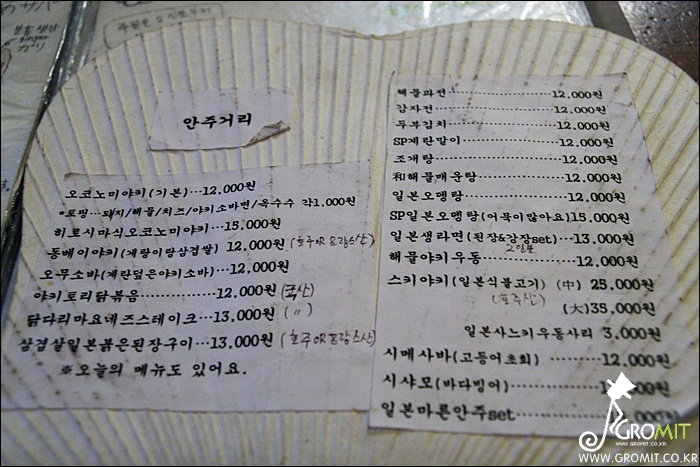 WWW.GROMIT.CO.KR
안주거리
오코노미야키(기본)···12.000원
*토핑···돼지/해물/치즈/야키소바면/옥수수 각1.000원
히로시마식오코노미야키···15.000원
동베이야키(계랑이랑삼겹쌀) 12.000원 (호주OR프랑스산)
오무소바(계란덮은야키소바)···12.000원
야키토리닭볶음···············12.000원 (국산)
닭다리마요네즈스테이크···13.000원 (〃)
삼겹살일본붉은된장구이···13.000원 (호주OR프랑스산)
※오늘의 메뉴도 있어요.
해물파전························12.000원
감자전··························12.000원
두부김치························12.000원
SP계란말이······················12.000원
조개탕··························12.000원
和해물매운탕····················12.000원
일본오뎅탕······················12.000원
SP일본오뎅탕(어묵이많아요)15.000원
일본생라면(된장&간장set)···13.000원
2인분
해물야키우동····················12.000원
스키야키(일본식불고기) (中) 25.000원
(호주산)
(大)35.000원
일본사느키우동사리 3.000원
시메사바(고등어초회)·······12.000원
시샤모(바다빙어)
일본마른안주set
GROMIT
WWW.GROMIT.CO.KR